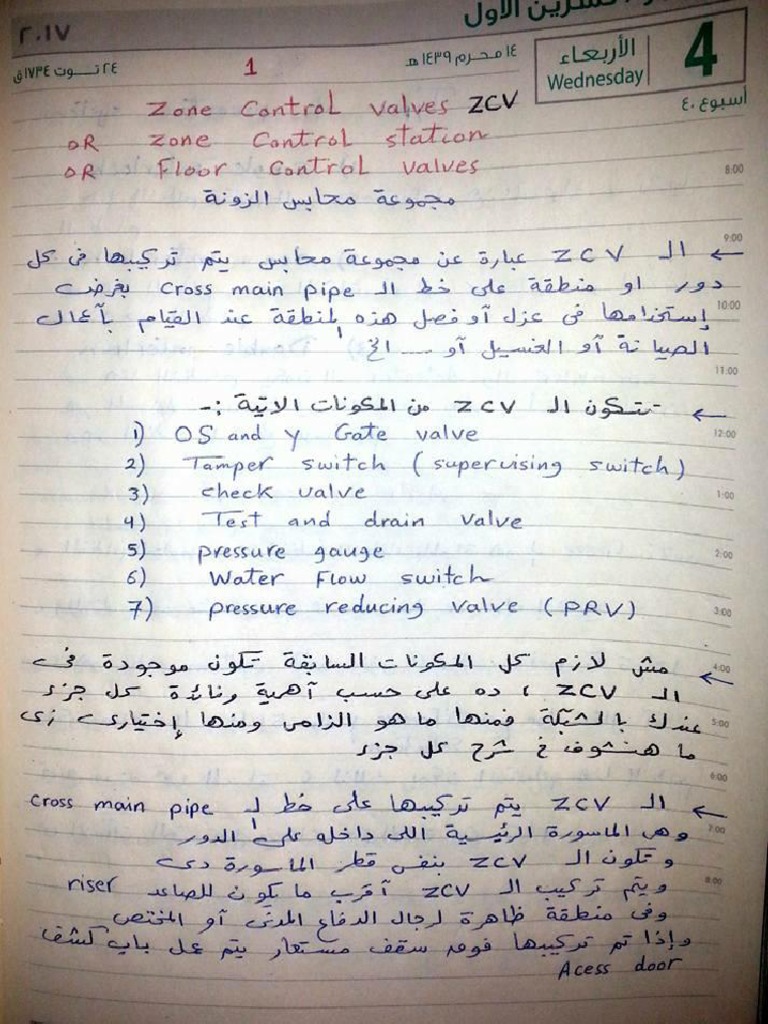 تشرين الاول
٢٠١٧
4
الأربعاء
Wednesday
١٤ محرم ١٤٣٩ هـ
٢٤ تــوت ١٧٣٤ ق
أسبوع ٤٠
1
Zone Control valves ZCV
OR zone Control station
OR Floor Control valves
8:00
مجموعة محابس الزونة
9:00
← الـ ZCV عبارة عن مجموعة محابس يتم تركيبها فى كل
دور او منطقة على خط الـ cross main pipe بغرض
10:00
إستخدامها فى عزل أو فصل هذه المنطقة عند القيام بأعمال
الصيانة أو الغسيل أو .... الخ
11:00
← تتكون الـ ZCV من المكونات الاتية :-
12:00
1) OS and y Gate valve
2) Tamper switch (supervising switch)
1:00
3) check valve
4) Test and drain valve
2:00
5) pressure gauge
6) Water Flow switch
3:00
7) pressure reducing valve (PRV)
4:00
← مش لازم كل المكونات السابقة تكون موجودة فى
الـ ZCV ، ده على حسب أهمية وفائدة كل جزء
5:00
عندك بالشبكة فمنها ما هو الزامى ومنها إختيارى زى
ما هنشوف فى شرح كل جزء
6:00
← الـ ZCV يتم تركيبها على خط الـ cross main pipe
7:00
وهى الماسورة الرئيسية اللى داخله على الدور
وتكون الـ ZCV بنفس قطر الماسورة دى
8:00
ويتم تركيب الـ ZCV أقرب ما يكون للصاعد riser
وفى منطقة ظاهرة لرجال الدفاع المدنى أو المختص
وإذا تم تركيبها فوق سقف مستعار يتم عمل باب كشف
Acess door